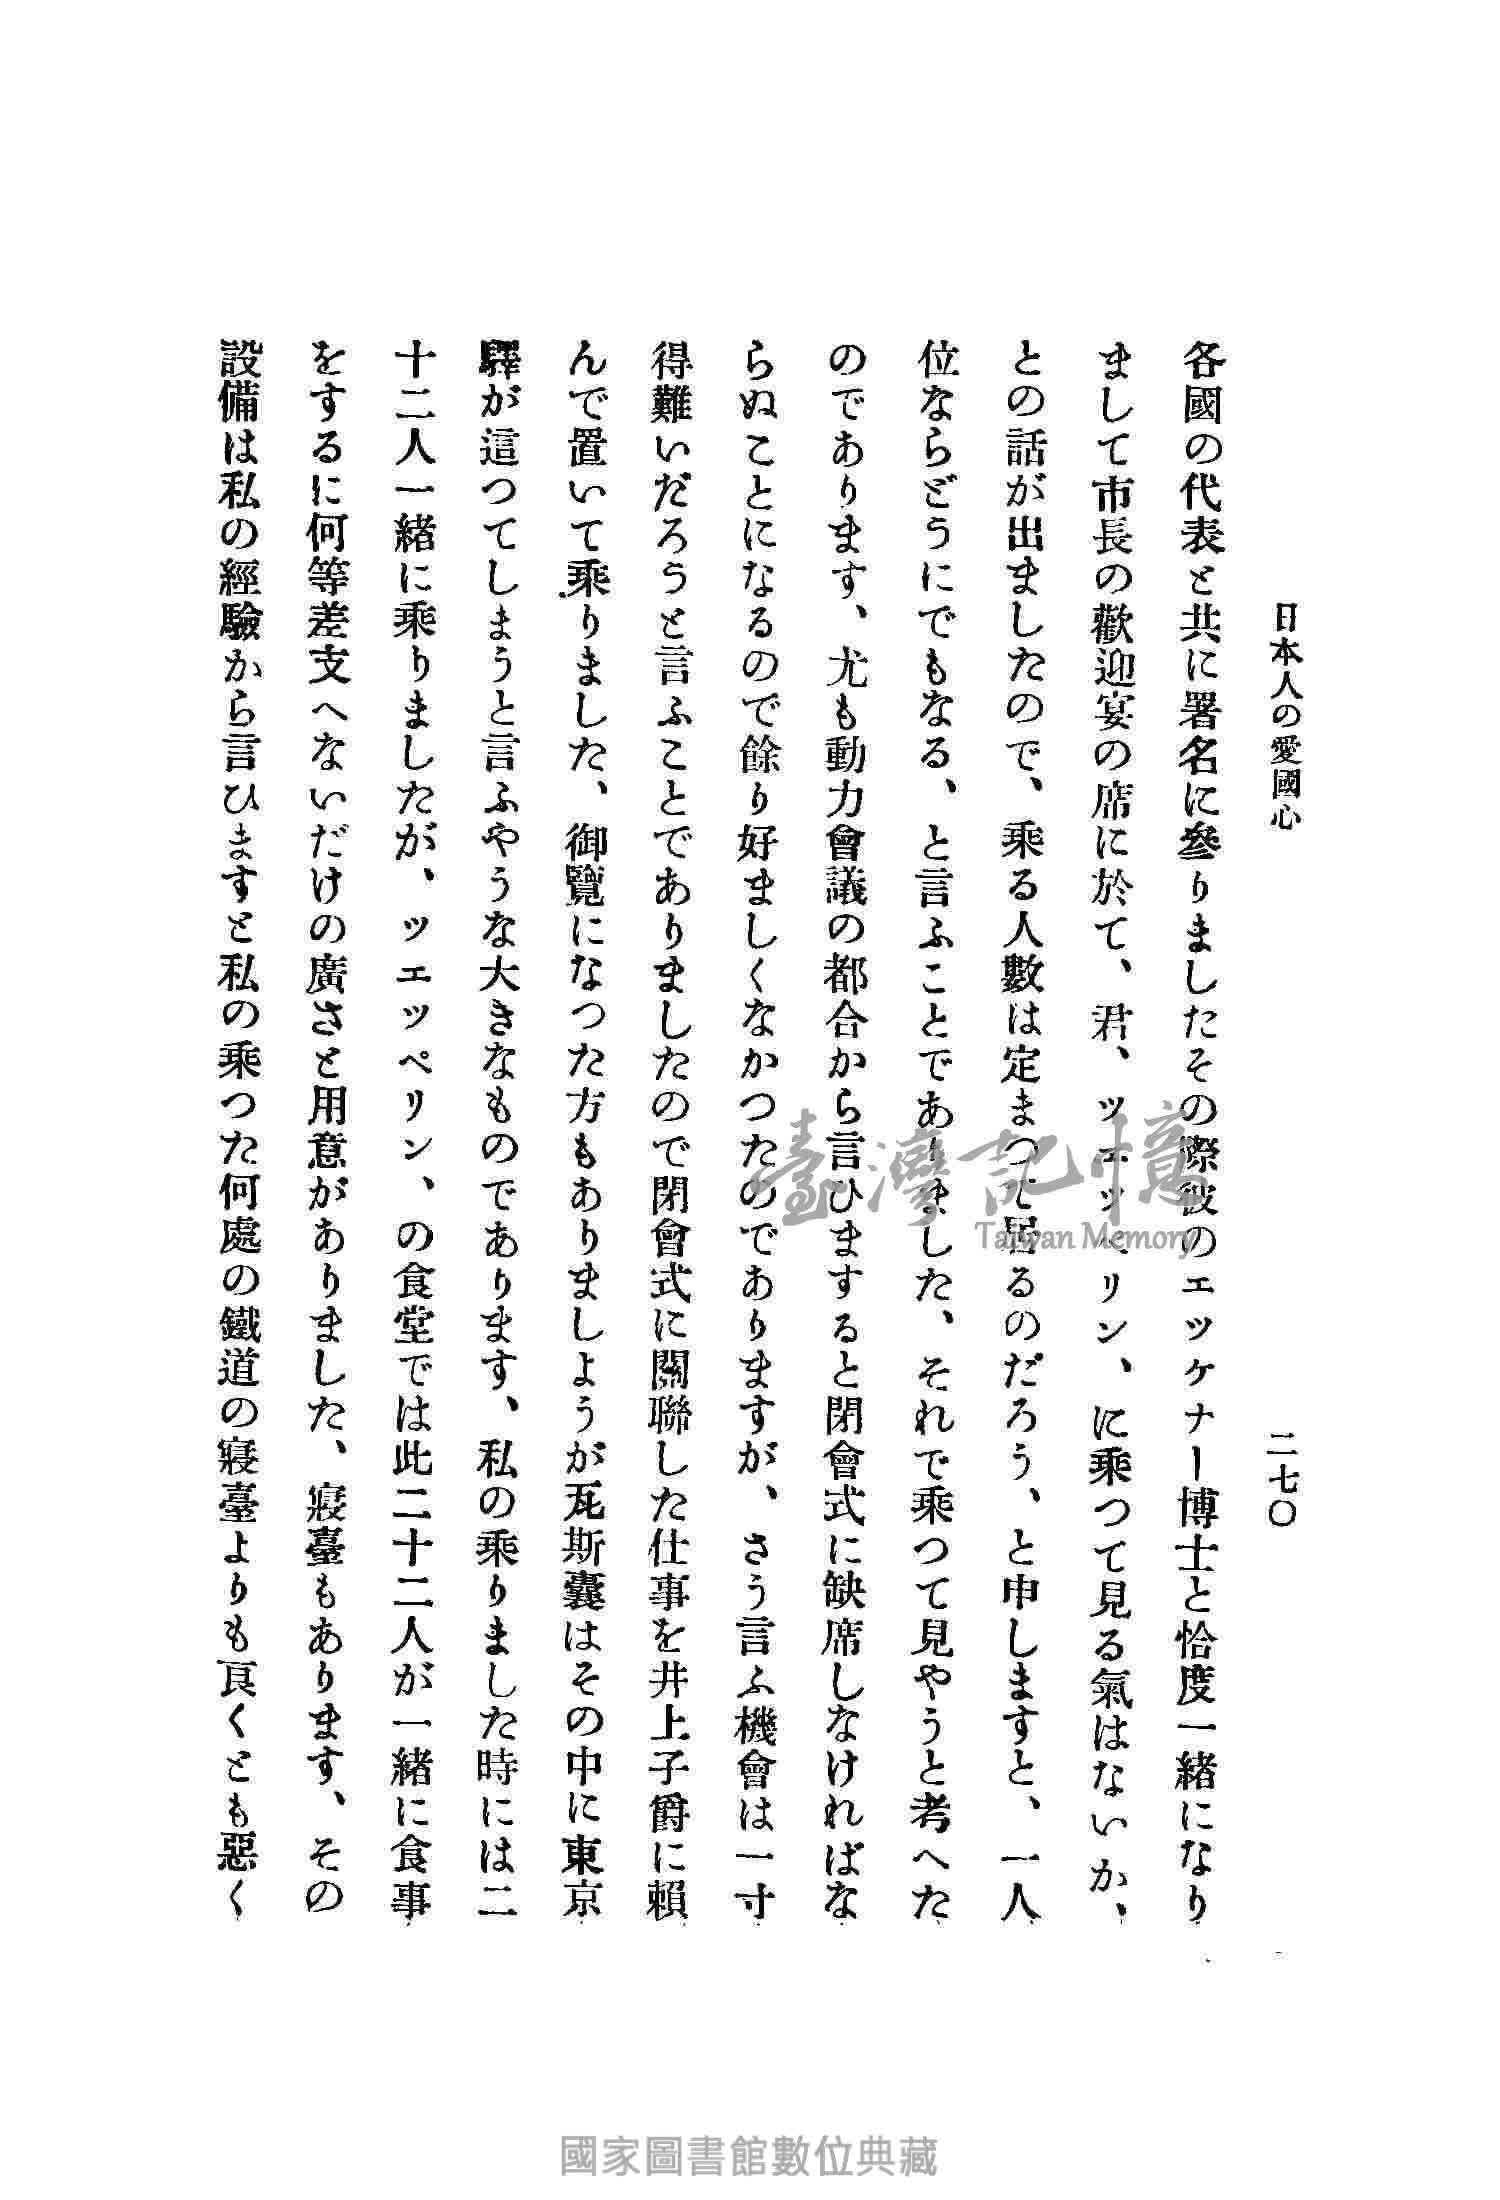 日本人の愛國心
二七〇
各國の代表と共に署名に參りましたその際彼のエッケナー博士と恰度一緒になり
まして市長の歡迎宴の席に於て、君、ッエッペリン、に乘つて見る氣はないか、
との話が出ましたので、乘る人數は定まつて居るのだらう、と申しますと、一人
位ならどうにでもなる、と言ふことでありました、それで乘つて見やうと考へた
のであります、尤も動力會議の都合から言ひますると閉會式に缺席しなければな
らぬことになるので餘り好ましくなかつたのでありますが、さう言ふ機會は一寸
得難いだろうと言ふことでありましたので閉會式に關聯した仕事を井上子爵に賴
んで置いて乘りました、御覽になつた方もありましようが瓦斯囊はその中に東京
驛が這つてしまうと言ふやうな大きなものであります、私の乘りました時には二
十二人一緒に乘りましたが、ッエッペリン、の食堂では此二十二人が一緒に食事
をするに何等差支へないだけの廣さと用意がありました、寢臺もあります、その
設備は私の經驗から言ひますと私の乘つた何處の鐵道の寢臺よりも良くとも惡く
臺灣記憶
Taiwan Memory
國家圖書館數位典藏